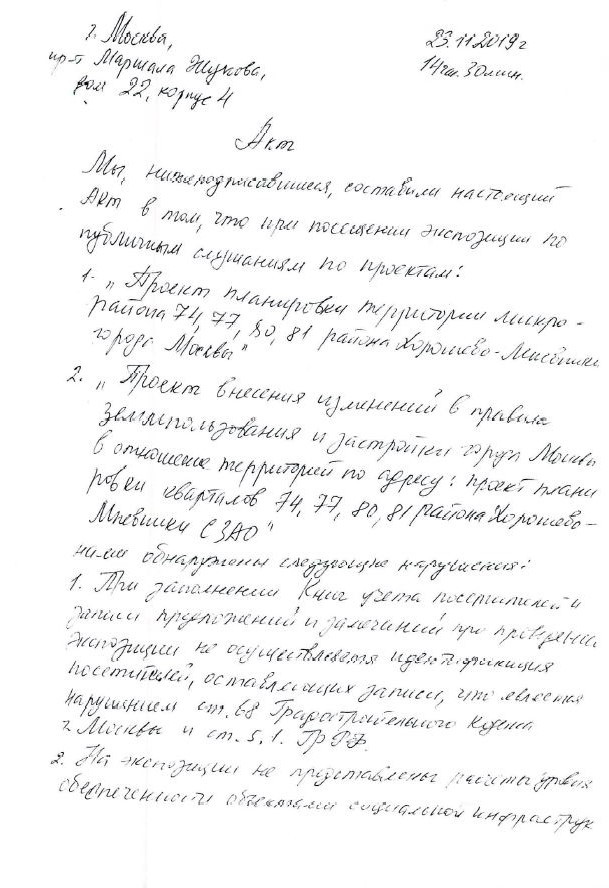 г. Москва,
пр-т Маршала Жукова,
дом 22, корпус 4
23.11.2019г
14час. 30мин.
Акт
Мы, нижеподписавшиеся, составили настоящий
Акт в том, что при посещении экспозиции по
публичным слушаниям по проектам:
1. „Проект планировки территории микро-
района 74, 77, 80, 81 района Хорошево-Мневники
города Москвы"
2. „Проект внесения изменений в правила
землепользования и застройки города Москвы
в отношение территорий по адресу: проект плани
ровки кварталов 74, 77, 80, 81 района Хорошево-
Мневники СЗАО"
нами обнаружены следующие нарушения:
1. При заполнении Книг учета посетителей и
записи предложений и замечаний при проведении
экспозиции не осуществляется идентификация
посетителей, оставляющих записи, что является
нарушением ст. 68 Градостроительного Кодекса
г. Москвы и ст. 5.1. ГрРФ.
2. На экспозиции не представлены расчеты уровня
обеспеченности объектами социальной инфраструк